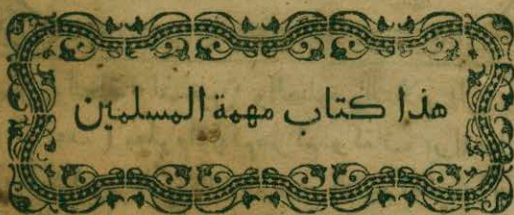 هذا كتاب مهمة المسلمين